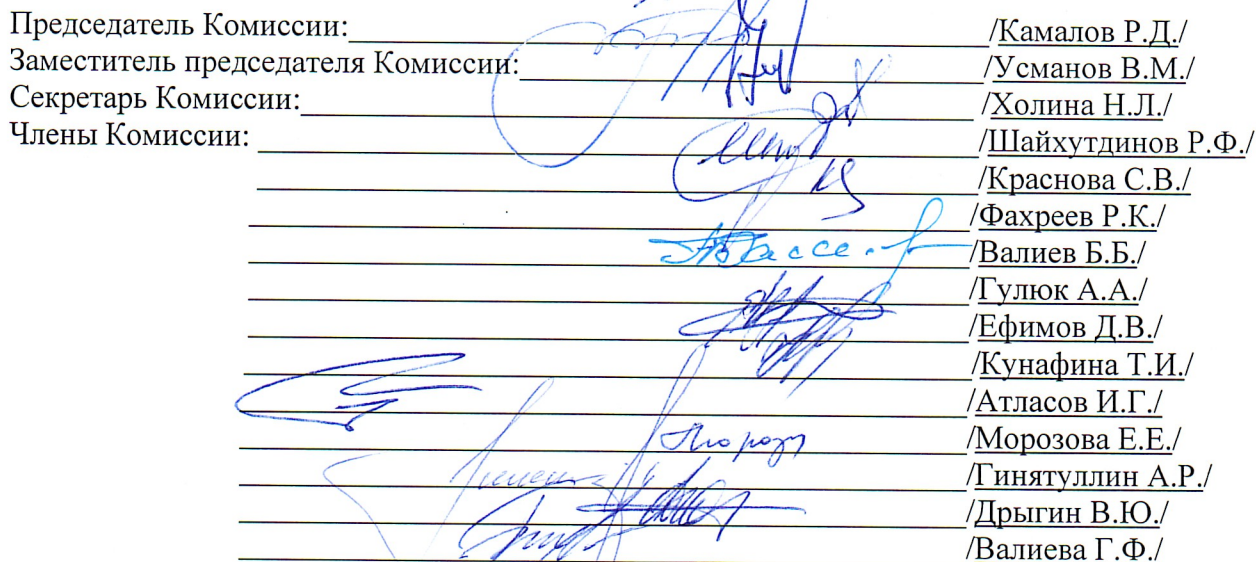 Председатель Комиссии: /Камалов Р.Д./
Заместитель председателя Комиссии: /Усманов В.М./
Секретарь Комиссии: /Холина Н.Л./
Члены Комиссии: /Шайхутдинов Р.Ф./
/Краснова С.В./
/Фахреев Р.К./
/Валиев Б.Б./
/Гулюк А.А./
/Ефимов Д.В./
/Кунафина Т.И./
/Атласов И.Г./
/Морозова Е.Е./
/Гинятуллин А.Р./
/Дрыгин В.Ю./
/Валиева Г.Ф./